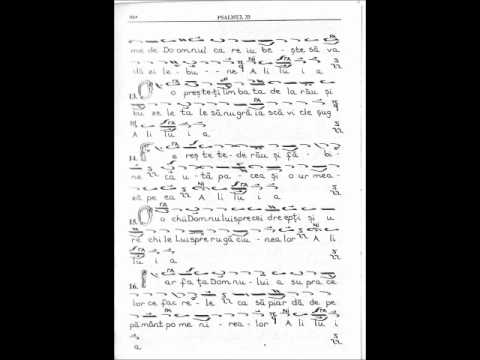 PSALMUL 33
me de Do omnul ca re iu be - ște să va
dă ei le - bu - - ne A li lu i a
13. O o prește-ți lim ba ta de la rău și
bu ze le ta le să nu gră ia scă vi cle șug
A li lu i a
14. F e rește te - de rău și fă - bi -
ne ca u - tă pa - cea și o ur mea -
ză pe ea A li lu i a
15. O o chii Domnului spre cei drepți și u
re chi le Lui spre ru gă ciu - nea lor A li
lu i a
16. I ar fa ța Dom nu - lui a su pra ce
lor ce fac re - le ca să piar dă de pe
pă mânt po me ni - rea - lor A li lu i
a